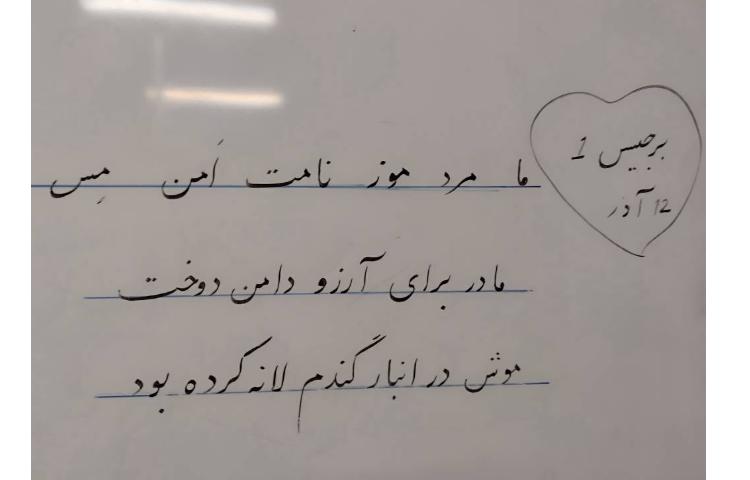 برجیس 1
12 آذر
ما مرد موز نامت اَمن مِس
مادر برای آرزو دامن دوخت
موش در انبار گندم لانه کرده بود